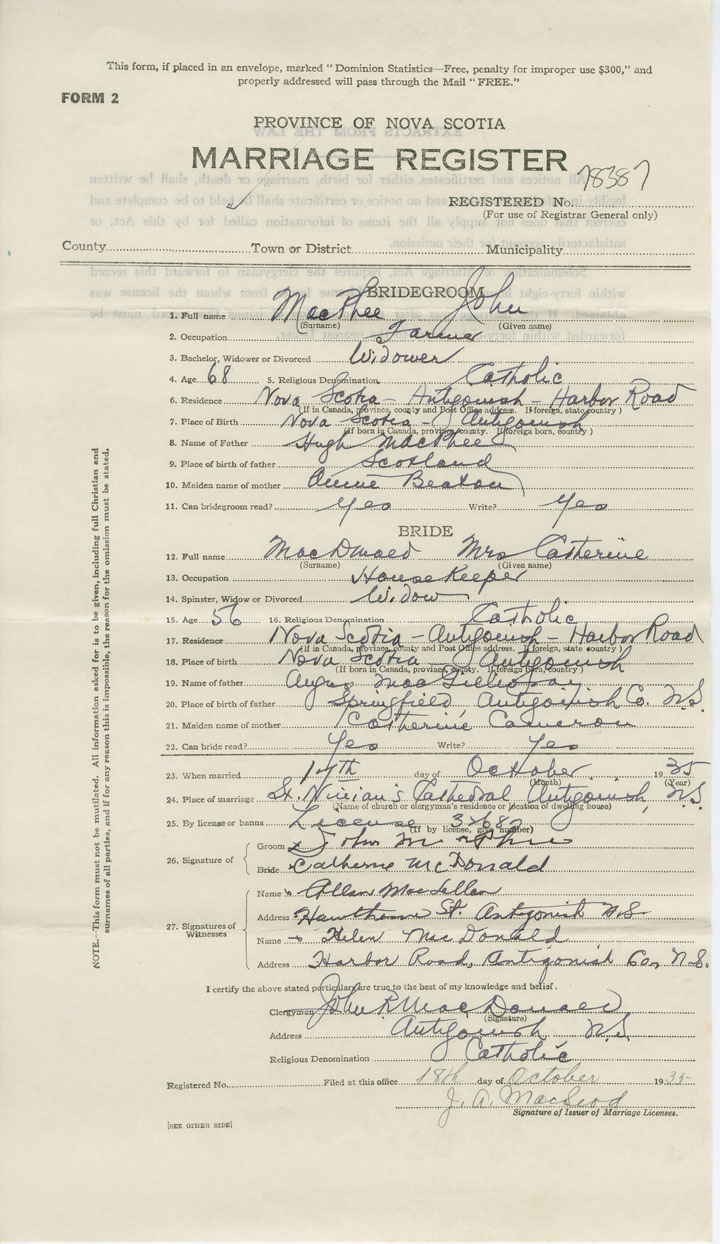 This form, if placed in an envelope, marked "Dominion Statistics—Free, penalty for improper use $300," and
properly addressed will pass through the Mail "FREE."
FORM 2
PROVINCE OF NOVA SCOTIA
MARRIAGE REGISTER
78387
REGISTERED No.
(For use of Registrar General only)
County Town or District Municipality
BRIDEGROOM
1. Full name MacPhee John
(Surname) (Given name)
2. Occupation Farmer
3. Bachelor, Widower or Divorced Widower
4. Age 68 5. Religious Denomination Catholic
6. Residence Nova Scotia - Antigonish - Harbor Road
(If in Canada, province, county and Post Office address. If foreign, state country)
7. Place of Birth Nova Scotia - Antigonish
(If born in Canada, province, county. If foreign born, country)
8. Name of Father Hugh MacPhee
9. Place of birth of father Scotland
10. Maiden name of mother Annie Beaton
11. Can bridegroom read? Yes Write? Yes
BRIDE
12. Full name MacDonald Mrs Catherine
(Surname) (Given name)
13. Occupation HouseKeeper
14. Spinster, Widow or Divorced Widow
15. Age 56 16. Religious Denomination Catholic
17. Residence Nova Scotia - Antigonish - Harbor Road
(If in Canada, province, county and Post Office address. If foreign, state country)
18. Place of birth Nova Scotia Antigonish
(If born in Canada, province, county. If foreign born, country)
19. Name of father Angus MacGillivray
20. Place of birth of father Springfield, Antigonish Co. N.S.
21. Maiden name of mother Catherine Cameron
22. Can bride read? Yes Write? Yes
23. When married 17th day of October 1935
(Month) (Year)
24. Place of marriage St. Ninian's Cathedral Antigonish, N.S.
(Name of church or clergyman's residence or location of dwelling house)
25. By license or banns License
(If by license, give number)
26. Signature of Groom x John
Bride Catherine McDonald
27. Signatures of Witnesses
Name Allan MacLellan
Address Hawthorne St. Antigonish N.S.
Name Helen MacDonald
Address Harbor Road, Antigonish Co, N.S.
I certify the above stated particulars are true to the best of my knowledge and belief.
Clergyman John R. MacDonald
(Signature)
Address Antigonish N.S.
Religious Denomination Catholic
Registered No. Filed at this office 18th day of October 1935
J. A. MacLeod
Signature of Issuer of Marriage Licenses.
[SEE OTHER SIDE]
NOTE.—This form must not be mutilated. All information asked for is to be given, including full Christian and
surnames of all parties, and if for any reason this is impossible, the reason for the omission must be stated.